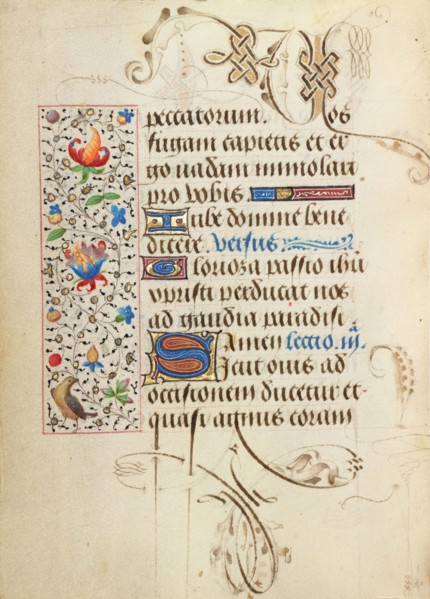 peccatorum. Vos
fugam capietis et er
go uadam immolari
pro vobis.
Iube domine bene
dicere. Versus
Glorioza passio ihu
xpristi perducat nos
ad gaudia paradisi.
amen lectio. iij.
Sicut ouis ad
occisionem ducetur et
quasi agnus coram